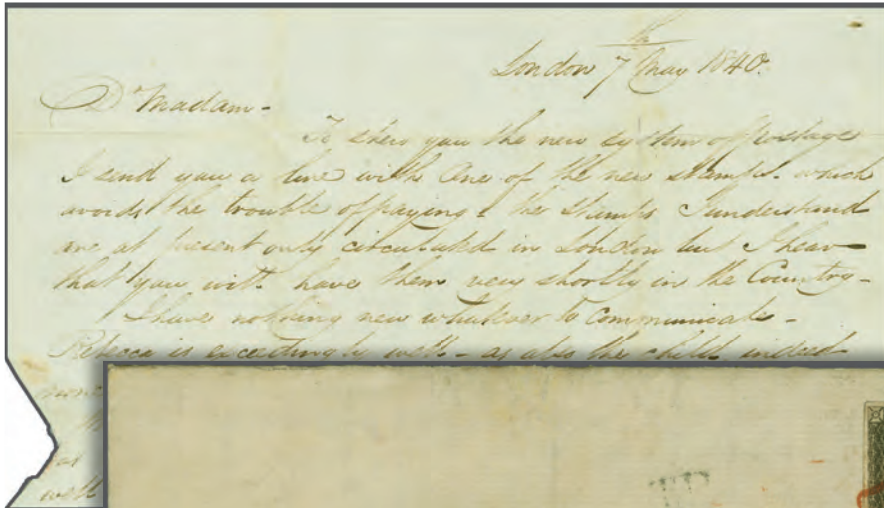 London 7th May 1840.
Dr Madam -
To shew you the new system of postage
I send you a line with One of the new Stamps - which
avoids the trouble of paying - the Stamps I understand
are at present only circulated in London but I hear
that you will have them very shortly in the Country -
I have nothing new whatever to communicate -
Rebecca is exceedingly well - as also the child indeed
as
well